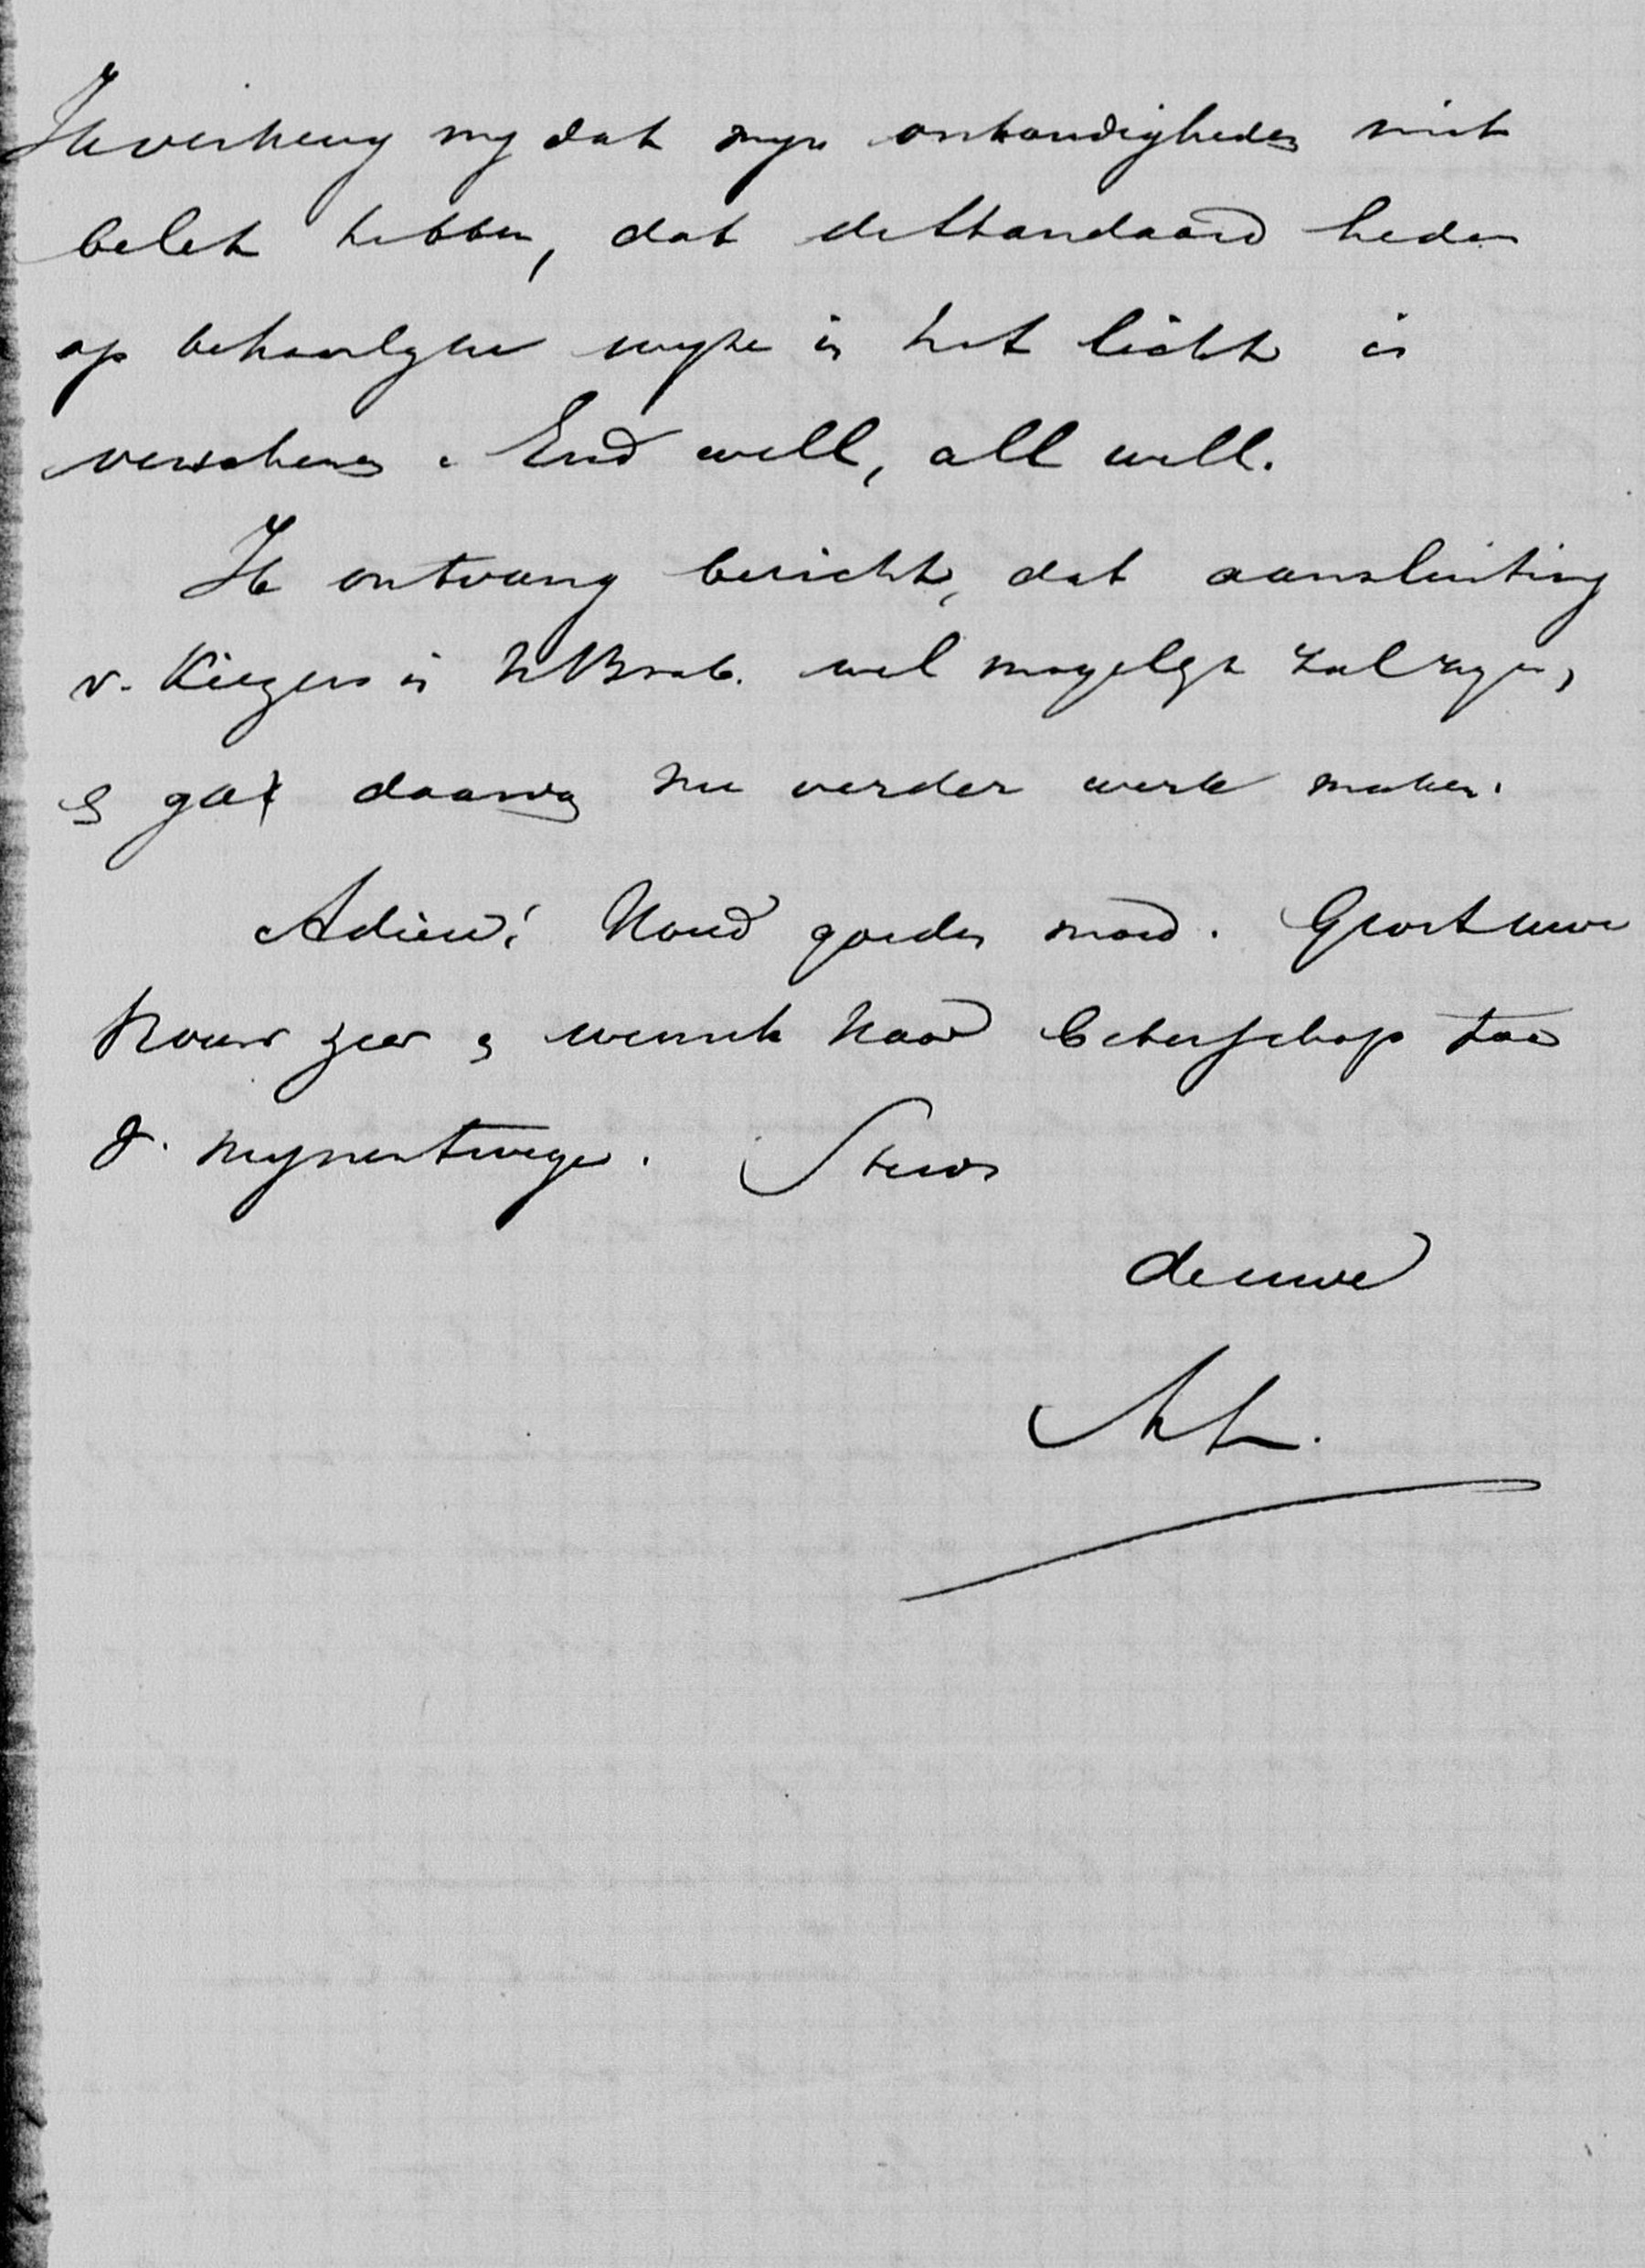 Ik verheug mij dat mijn onkundigheden niet
belet hebben, dat de Standaard heden
op behoorlijke wijze in het licht is
verschenen. End well, all well.
Ik ontvang bericht, dat aansluiting
v. Kiezers in NBrab. wel mogelijk zal zijn,
& ga daarvan nu verder werk maken.
Adieu! Houd goeden moed. Groet uwe
vrouw zeer & wensch haar beterschap toe
mijnentwege. Steeds
de uwe